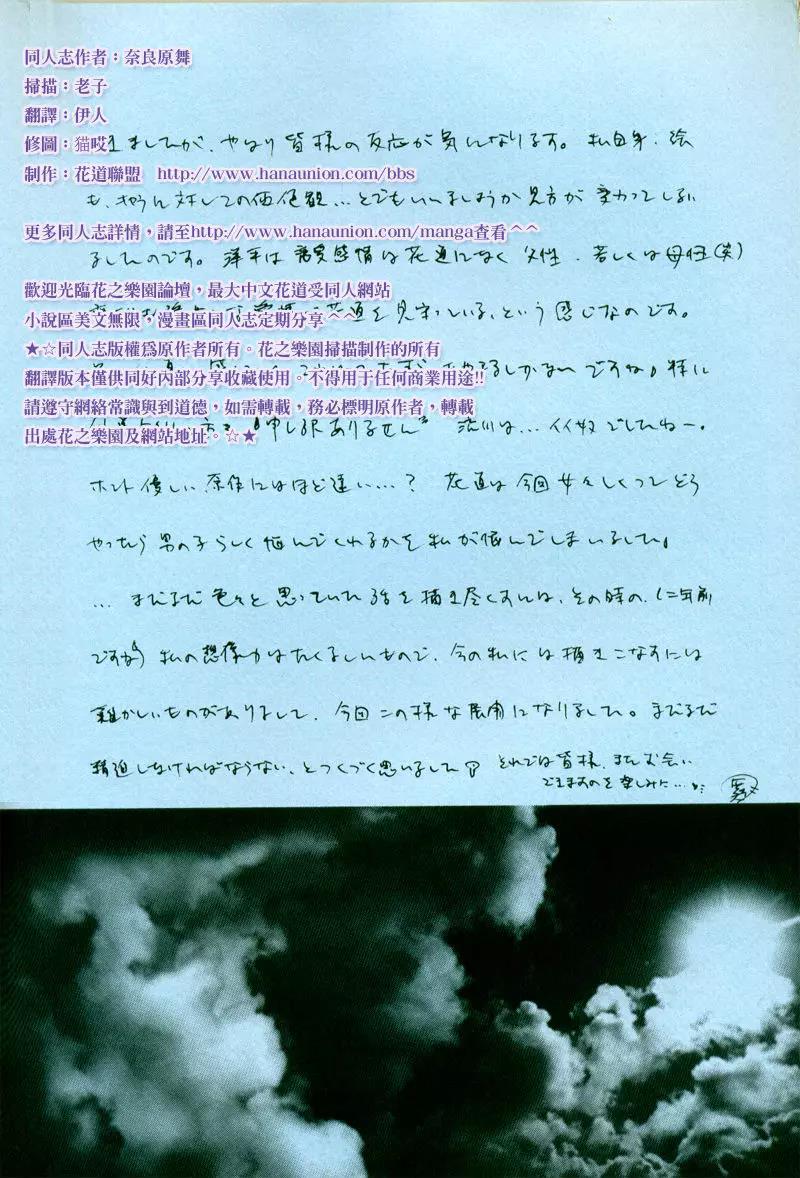 同人志作者：奈良原舞
掃描：老子
翻譯：伊人
修圖：猫哎
ましたが、やはり皆様の反応が気になります。私自身、絵
制作：花道聯盟 http://www.hanaunion.com/bbs
も、キャラに対しての価値観…とでもいいましょうか見方が変わってしまい
更多同人志詳情，請至http://www.hanaunion.com/manga查看^^
ましたのです。洋平は恋愛感情は花道になく父性、若しくは母性(笑)
歡迎光臨花之樂園論壇，最大中文花道受同人網站
を見守っている、という感じなのです。
小說區美文無限，漫畫區同人志定期分享^^
★☆同人志版權爲原作者所有。花之樂園掃描制作的所有
しかないですね。特に
翻譯版本僅供同好內部分享收藏使用。不得用于任何商業用途!!
請遵守網絡常識與到道德，如需轉載，務必標明原作者，轉載
申し訳ありません 流川は…イイ奴でしたねー。
出處花之樂園及網站地址。☆★
ホント優しい原作にはほど遠い…？ 花道は今回女々しくってどう
やったら男の子らしく悩んでくれるかを私が悩んでしまいました。
…まだまだ色々と思っていた事を描き尽くすには、その時の、(二年前
ですね)私の想像力はたくましいもので、今の私には描きこなすには
難かしいものがありまして、今回この様な展開になりました。まだまだ
精進しなければならない、とつくづく思いました それでは皆様、またお会い
できますのを楽しみに…
舞